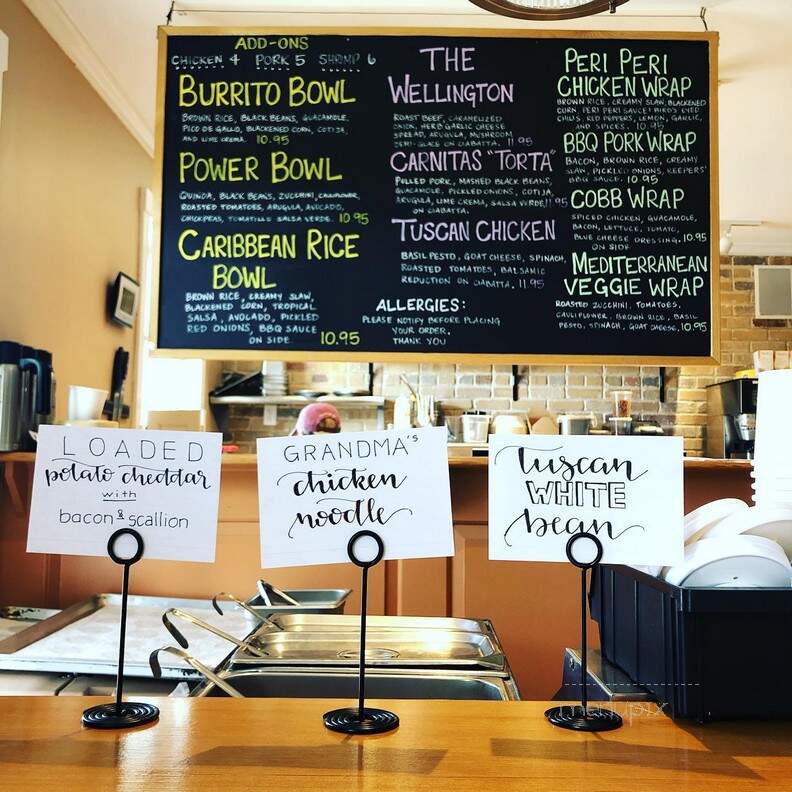 ADD-ONS
CHICKEN 4 PORK 5 SHRIMP 6
BURRITO BOWL
BROWN RICE, BLACK BEANS, GUACAMOLE,
PICO DE GALLO, BLACKENED CORN, COTIJA,
AND LIME CREMA. 10.95
POWER BOWL
QUINOA, BLACK BEANS, ZUCCHINI, CAULIFLOWER,
ROASTED TOMATOES, ARUGULA, AVOCADO,
CHICKPEAS, TOMATILLO SALSA VERDE. 10.95
CARIBBEAN RICE
BOWL
BROWN RICE, CREAMY SLAW,
BLACKENED CORN, TROPICAL
SALSA, AVOCADO, PICKLED
RED ONIONS, BBQ SAUCE
ON SIDE 10.95
THE
WELLINGTON
ROAST BEEF, CARAMELIZED
ONION, HERB GARLIC CHEESE
SPREAD, ARUGULA, MUSHROOM
DEMI-GLACE ON CIABATTA. 11.95
CARNITAS "TORTA"
PULLED PORK, MASHED BLACK BEANS,
GUACAMOLE, PICKLED ONIONS, COTIJA,
ARUGULA, LIME CREMA, SALSA VERDE, 11.95
ON CIABATTA.
TUSCAN CHICKEN
BASIL PESTO, GOAT CHEESE, SPINACH,
ROASTED TOMATOES, BALSAMIC
REDUCTION ON CIABATTA. 11.95
ALLERGIES:
PLEASE NOTIFY BEFORE PLACING
YOUR ORDER.
THANK YOU
PERI PERI
CHICKEN WRAP
BROWN RICE, CREAMY SLAW, BLACKENED
CORN, PERI PERI SAUCE! BIRD'S EYED
CHILIS, RED PEPPERS, LEMON, GARLIC,
AND SPICES. 10.95
BBQ PORK WRAP
BACON, BROWN RICE, CREAMY
SLAW, PICKLED ONIONS, KEEPERS'
BBQ SAUCE. 10.95
COBB WRAP
SPICED CHICKEN, GUACAMOLE,
BACON, LETTUCE, TOMATO,
BLUE CHEESE DRESSING. 10.95
ON SIDE
MEDITERRANEAN
VEGGIE WRAP
ROASTED ZUCCHINI, TOMATOES,
CAULIFLOWER, BROWN RICE, BASIL
PESTO, SPINACH, GOAT CHEESE. 10.95
LOADED
potato cheddar
with
bacon & scallion
GRANDMA'S
chicken
noodle
tuscan
WHITE
bean
menupix